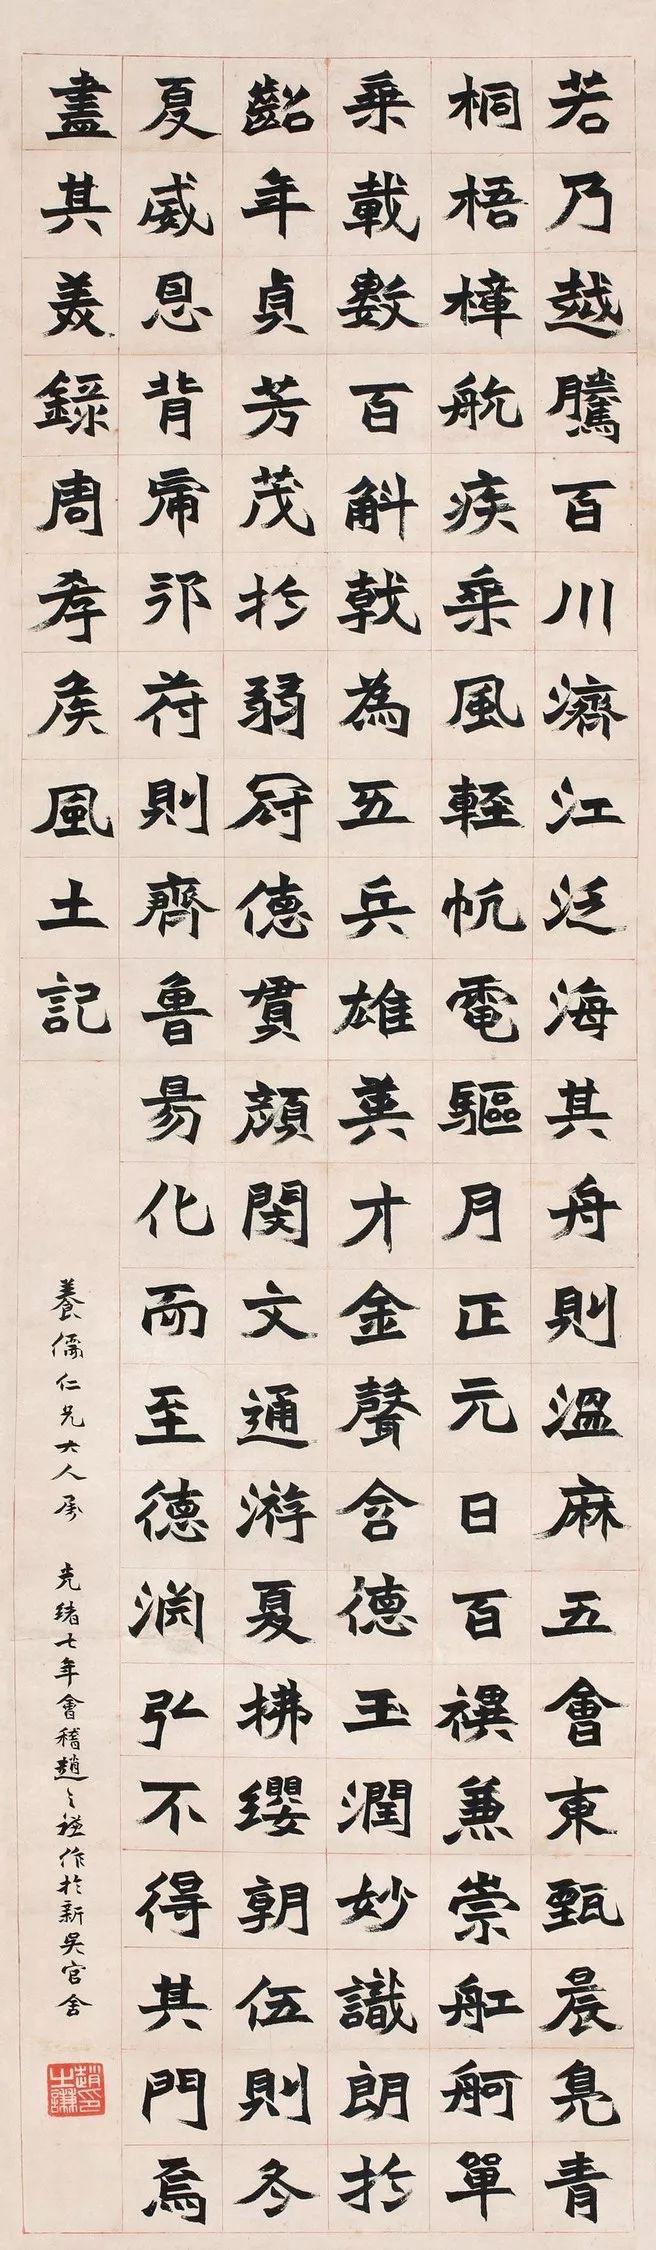 若乃越騰百川濟江泛海其舟則溫麻五會東甄晨鳧青
桐梧樟航疾乘風輕帆電驅月正元日百禩兼崇舡舸單
乘載數百斛戟為五兵雄英才金聲含德玉潤妙識朗於
齠年貞芳茂於弱冠德貫顏閔文通游夏拂纓朝伍則冬
夏威恩背帝邪苻則齊魯易化而至德淵弘不得其門焉
盡其美錄周孝侯風土記
養儒仁兄大人屬 光緒七年會稽趙之謙作於新吳官舍
趙之謙印